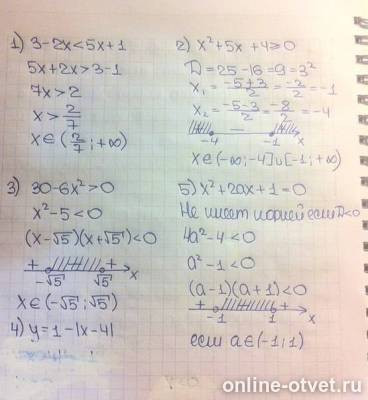 1) 3-2x<5x+1
5x+2x>3-1
7x>2
x>2/7
x∈(2/7;+∞)
2) x²+5x+4≥0
D=25-16=9=3²
x₁=(-5+3)/2=-2/2=-1
x₂=(-5-3)/2=-8/2=-4
-4 - -1 x
x∈(-∞;-4]∪[-1;+∞)
3) 30-6x²>0
x²-5<0
(x-√5)(x+√5)<0
+ + x
-√5 √5
x∈(-√5;√5)
4) y=1-|x-4|
5) x²+2ax+1=0
Не имеет корней если D<0
4a²-4<0
a²-1<0
(a-1)(a+1)<0
+ +
-1 1 x
если a∈(-1;1)
online-otvet.ru